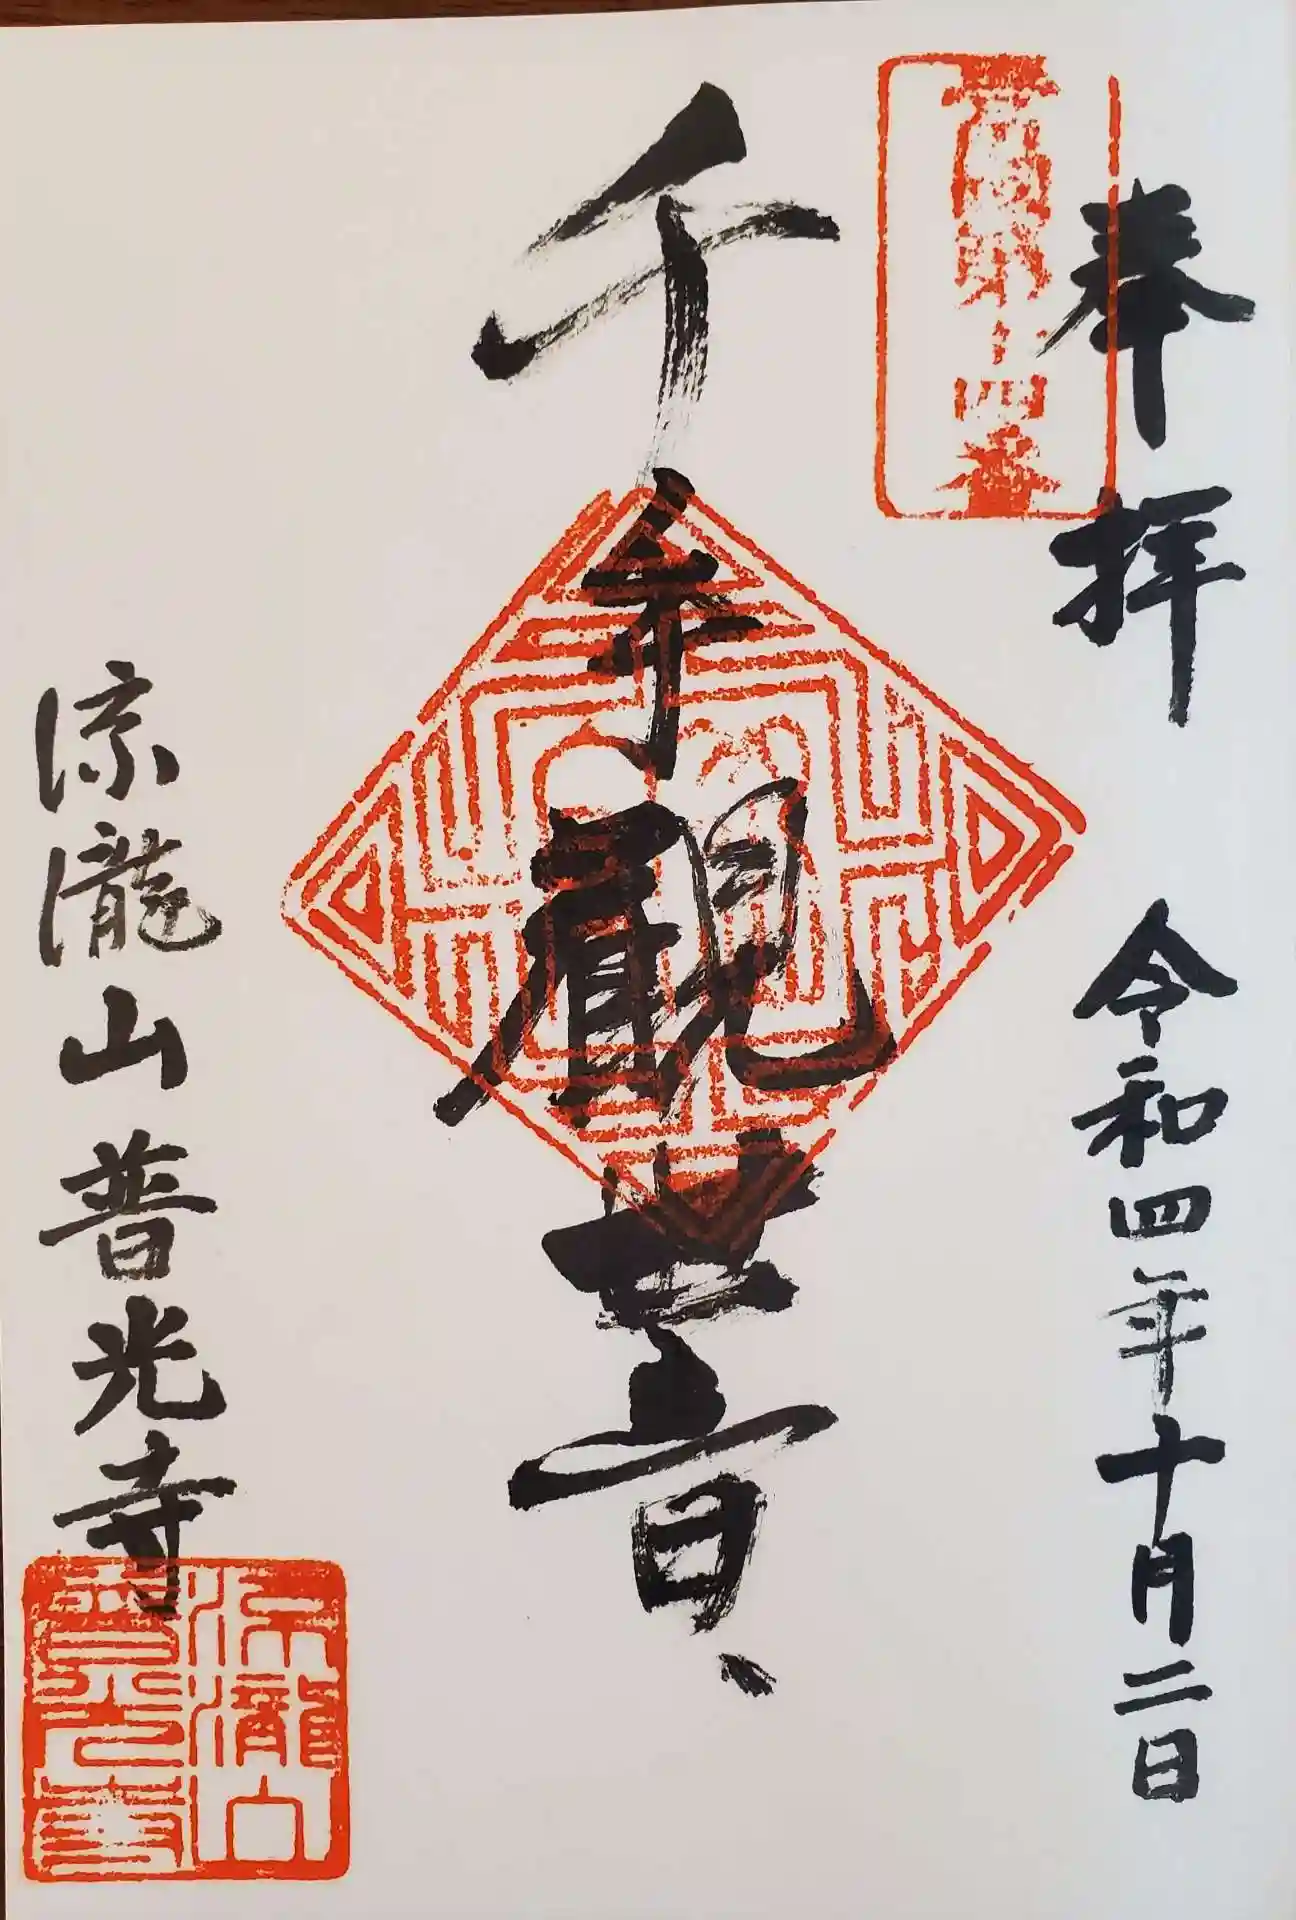 奉拝 令和四年十月二日
第十四番
千手觀世音
涼瀧山普光寺
涼瀧山
普光寺